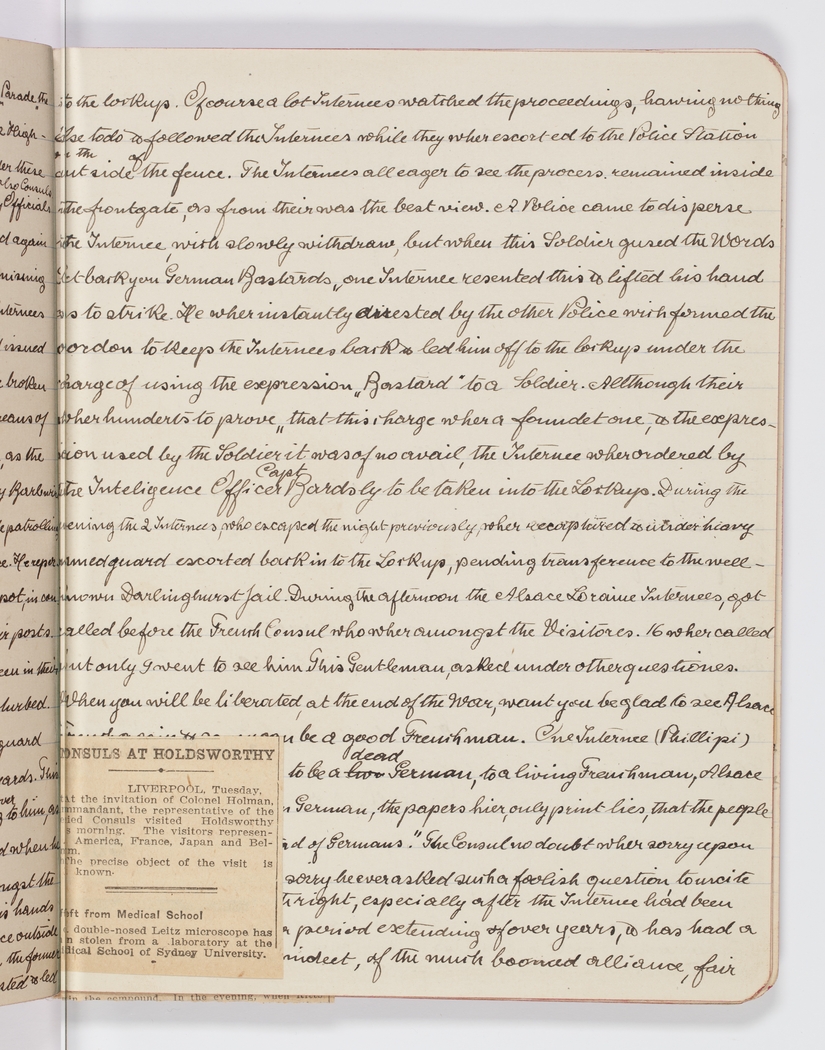 Parade, the
High-
these
Consuls
Officials
again
Internees
issued
broken
means of
as the
patrolling
posts.
been in their
guard
to him, as
when he
amongst the
hands
outside
the former
& led
to the lockup. Of course a lot Internees watched the proceedings, hawing nothing
else todo & followed the Internees while they wher escorted to the Police Station
on the
out side of the fence. The Internees all eager to see the process. remained inside
the frontgate, as from their was the best view. A Police came to disperse
the Internee, wich slowly withdraw, but when this Soldier gused the Words
Get back you German Bastards„ one Internee resented this & lifted his hand
as to strike. He wher instantly arrested by the other Police wich formed the
cordon to keep the Internees back & led him off to the lockup under the
charge of using the expression „Bastard" to a Soldier. Allthough their
wher hunderts to prove„ that this charge wher a foundet one, & the expres-
sion used by the Soldier it was of no avail, the Internee wher ordered by
the Inteligence Officer Capt Bardsly to be taken into the Lockup. During the
evening the 2 Internees, who escaped the night previously, wher recaptured & under heavy
armed guard escorted back in to the Lockup, pending transference to the well-
known Darlinghurst Jail. During the afternoon the Alsace Loraine Internees, got
called before the French Consul who wher amongst the Visitores. 16 wher called
but only 9 went to see him This Gentleman, asked under other questiones.
When you will be liberated, at the end of the War, want you be glad to see Alsace
be a good Frenchman. One Internee (Phillipi)
to be a dead German, to a living Frenchman, Alsace
German, the papers hier, only print lies, that the people
of Germans." The Consul no doubt wher sorry upon
sorry he ever asked such a foolish question, to
right, especially after the Internee had been
a period extending of over years, & has had a
of the much boomed alliance, fair
CONSULS AT HOLDSWORTHY
LIVERPOOL, Tuesday,
At the invitation of Colonel Holman,
commandant, the representative of the
allied Consuls visited Holdsworthy
this morning. The visitors represen-
America, France, Japan and Bel-
gium.
The precise object of the visit is
known.
Theft from Medical School
A double-nosed Leitz microscope has
been stolen from a laboratory at the
Medical School of Sydney University.
in the compound. In the evening, when